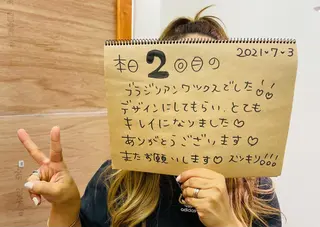 2021・7・3
本日2回目の
ブラジリアンワックスでした!!
デザインにしてもらい、とても
キレイになりました♡
ありがとうございます♡
またお願いします♡ スッキリ!!!
adidas